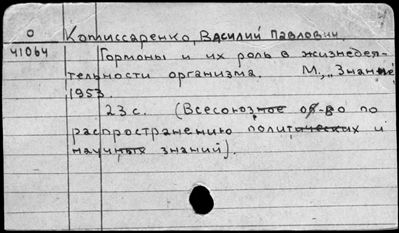 О Комиссаренко, Василий Павлович.
41064 Гормоны и их роль в жизнедея-
тельности организма. М., „Знание"
1953.
23 с. (Всесоюзное об-во по
распространению политических и
научных знаний).